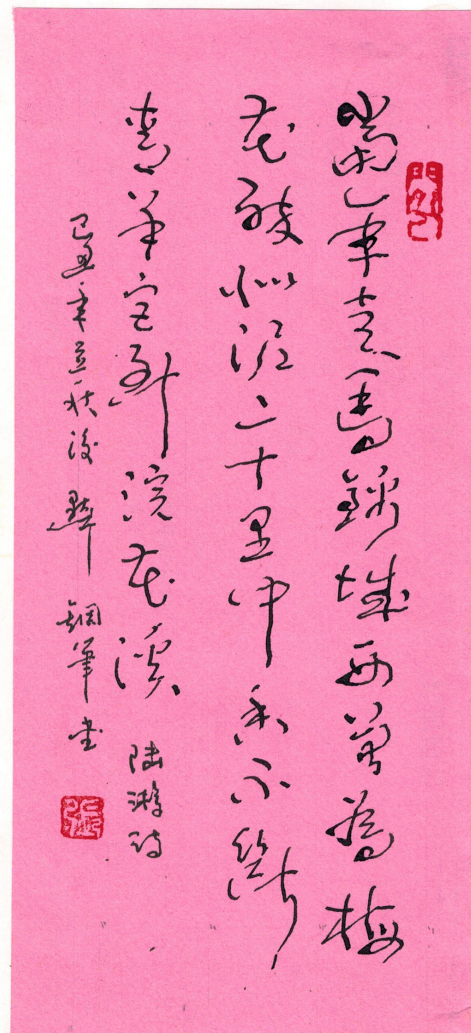 當年走馬錦城西曾為梅
花醉似泥二十里中香不斷
青羊宮到浣花溪 陸游詩
己丑年立秋後 鋼筆書
張